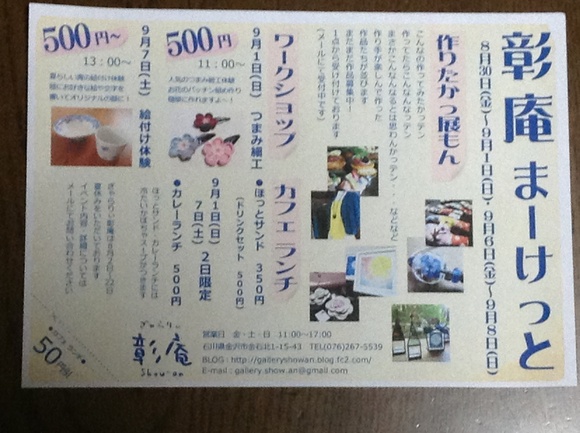 彰庵まーけっと
8月30日(金)~9月1日(日)・9月6日(金)~9月8日(日)
作りたかつ展もん
こんなの作ってみたかっテン
作ってたらこんなんなっテン
まさかこんなんなるとは思わんかっテン・・などなど
作り手が楽しんで作った
作品たちが並びます
またまだ作品募集中!
1点から受け付けております
(メールにて受付中です)
ワークショップ
9月1日(日) つまみ細工
500円
11:00~
人気のつまみ細工体験
お花のパッチン留め作り
簡単に作れますよ~!
9月7日(土) 絵付け体験
500円~
13:00~
カフェ ランチ
●ほっとサンド 350円
(ドリンクセット 500円)
9月1日(日)
7日(土) 2日限定
●カレーランチ 500円
ほっとサンド・カレーランチには
冷たいかぼちゃスープがつきます
ぎゃらりぃ彰庵は8月2日~22日
夏休みをいただいております
イベント内容・詳細については
メールにてお問い合わせください
ぎゃらりー
彰庵
Show-an
営業日 金・土・日 11:00~17:00
石川県金沢市金石北1-15-43 TEL(076)267-5539
BLOG:http://galleryshowan.blog.fc2.com/
E-mail:gallery.show.an@gmail.com
●カフェ ランチ●
50円引